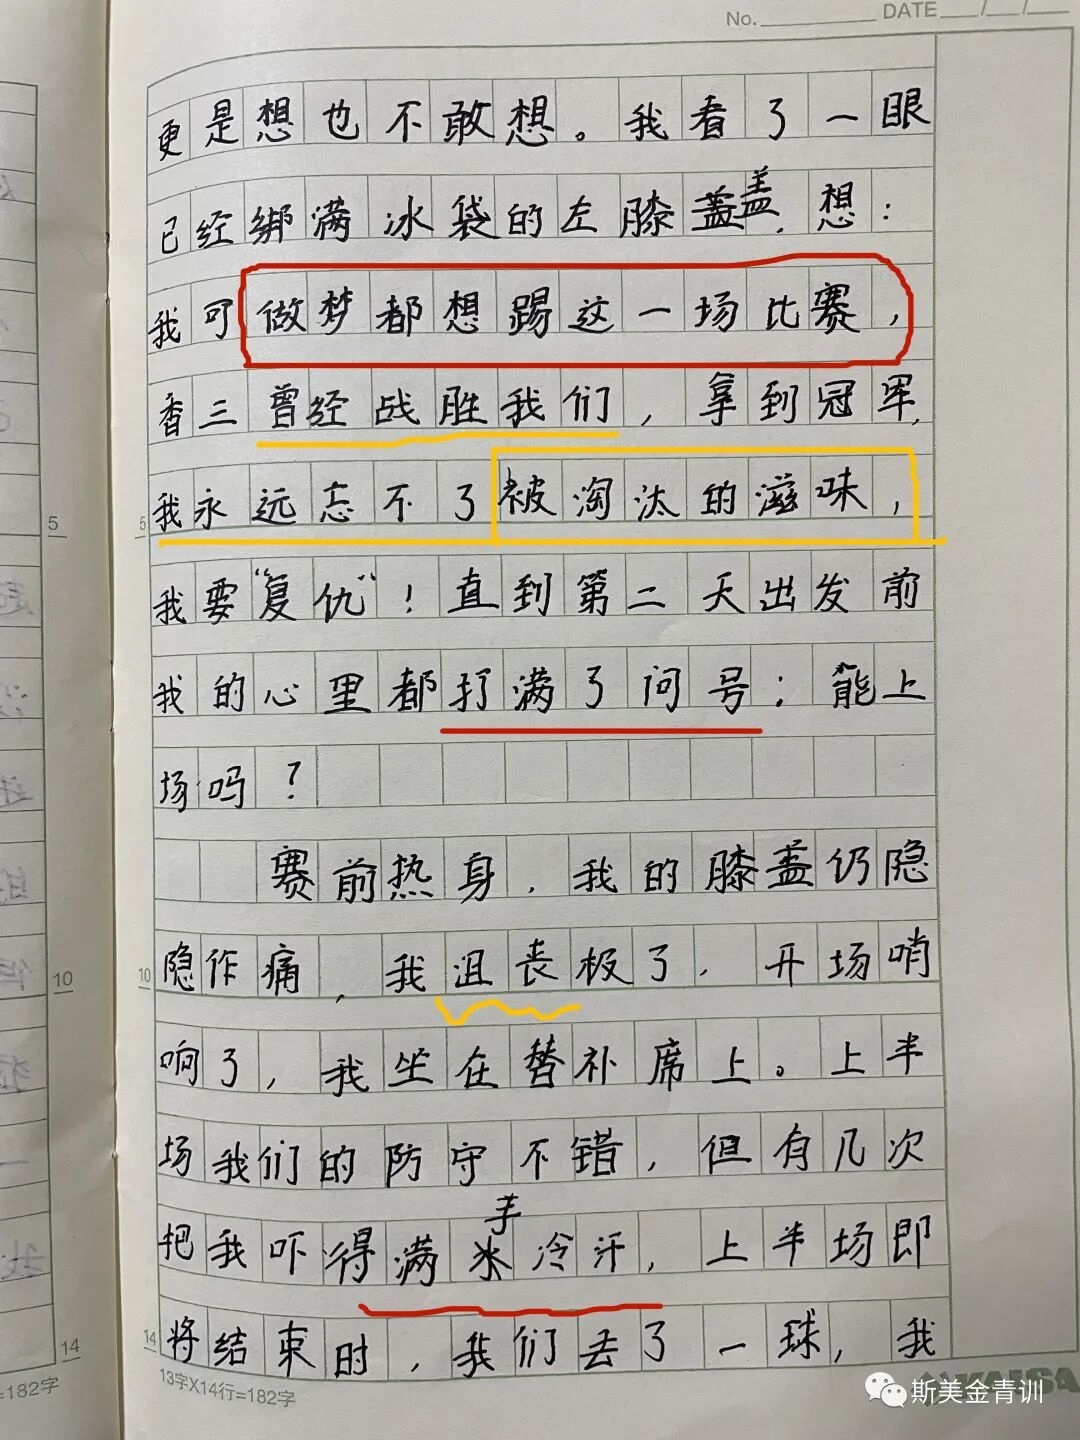 No. DATE / /
更是想也不敢想。我看了一眼
已经绑满冰袋的左膝盖盖,想:
我可做梦都想踢这一场比赛,
香三曾经战胜我们,拿到冠军,
我永远忘不了被淘汰的滋味,
5
5
我要“复仇”!直到第二天出发前
我的心里都打满了问号:能上
场吗?
赛前热身,我的膝盖仍隐
隐作痛,我沮丧极了,开场哨
10
10
响了,我坐在替补席上。上半
场我们的防守不错,但有几次
手
把我吓得满米冷汗,上半场即
将结束时,我们丢了一球,我
14
14
=182字
13字X14行=182字
斯美金青训